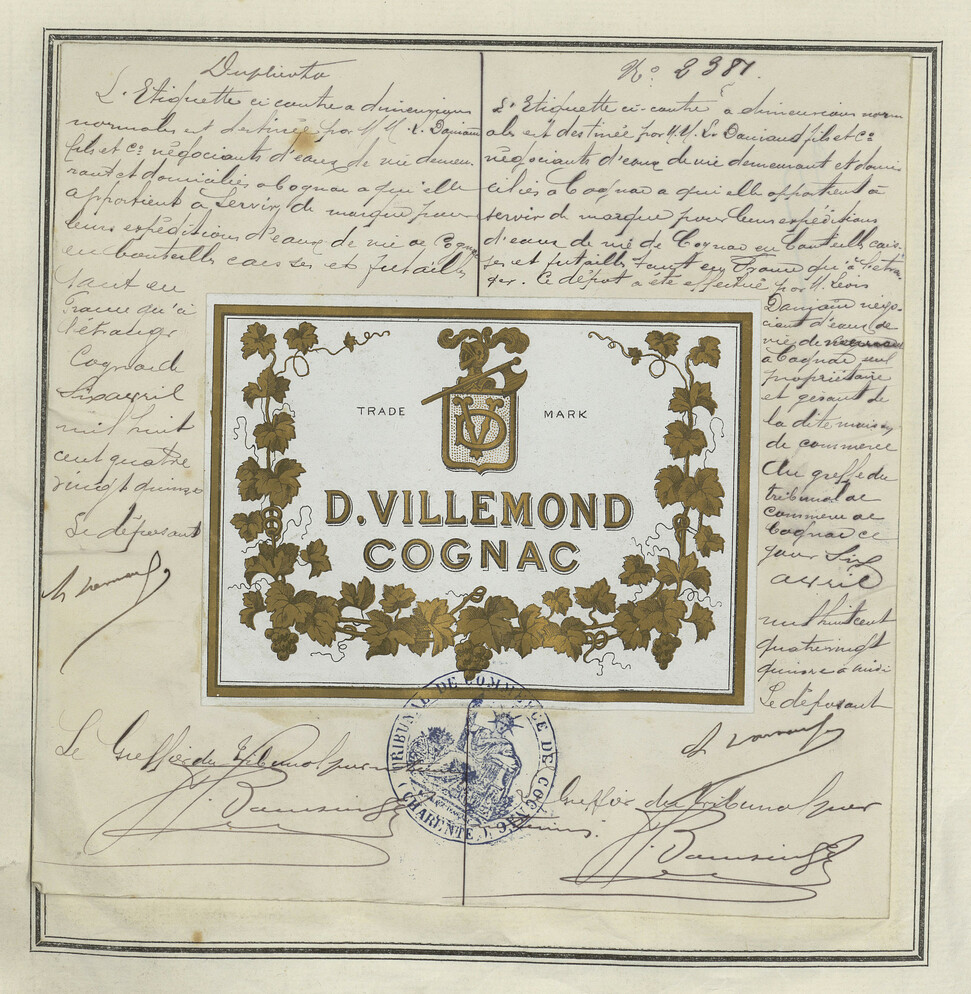 Duplicata
L'Etiquette ci contre a dimensions
normales est destinée par M.M. L. Damiaud
fils et Co négociants d'eaux de vie demeu-
rant et domiciliés a Cognac a qu'elle
appartient à servir de marque pour
leurs expéditions d'eaux de vie de Cognac
en bouteilles caisses et futailles
tant en
France qu'à
l'étranger
Cognac le
Six avril
mil huit
cent quatre
vingt quinze
Le déposant
No 2381.
L'Etiquette ci-contre à dimensions norm
ales est destinée par M.M. L. Damiaud fils et Co
négociants d'eaux de vie demeurant et domi
ciliés à Cognac a qui elle appartient à
servir de marque pour leurs expéditions
d'eaux de vie de Cognac en bouteilles cais-
ses et futailles tant en France qu'à l'étra-
ger. Ce dépôt a été effectué par M. Louis
Damiaud négo-
ciant d'eaux de
vie de
a Cognac seul
propriétaire
et gérant de
la dite maison
de commerce
Au greffe du
tribunal de
commerce de
Cognac ce
jour Six
avril
mil huit cent
quatre vingt
quinze à midi
Le déposant
TRADE MARK
VD
D. VILLEMOND
COGNAC
TRIBUNAL DE COMMERCE DE COGNAC
(CHARENTE)
Le Greffier du Tribunal
Greffier du Tribunal